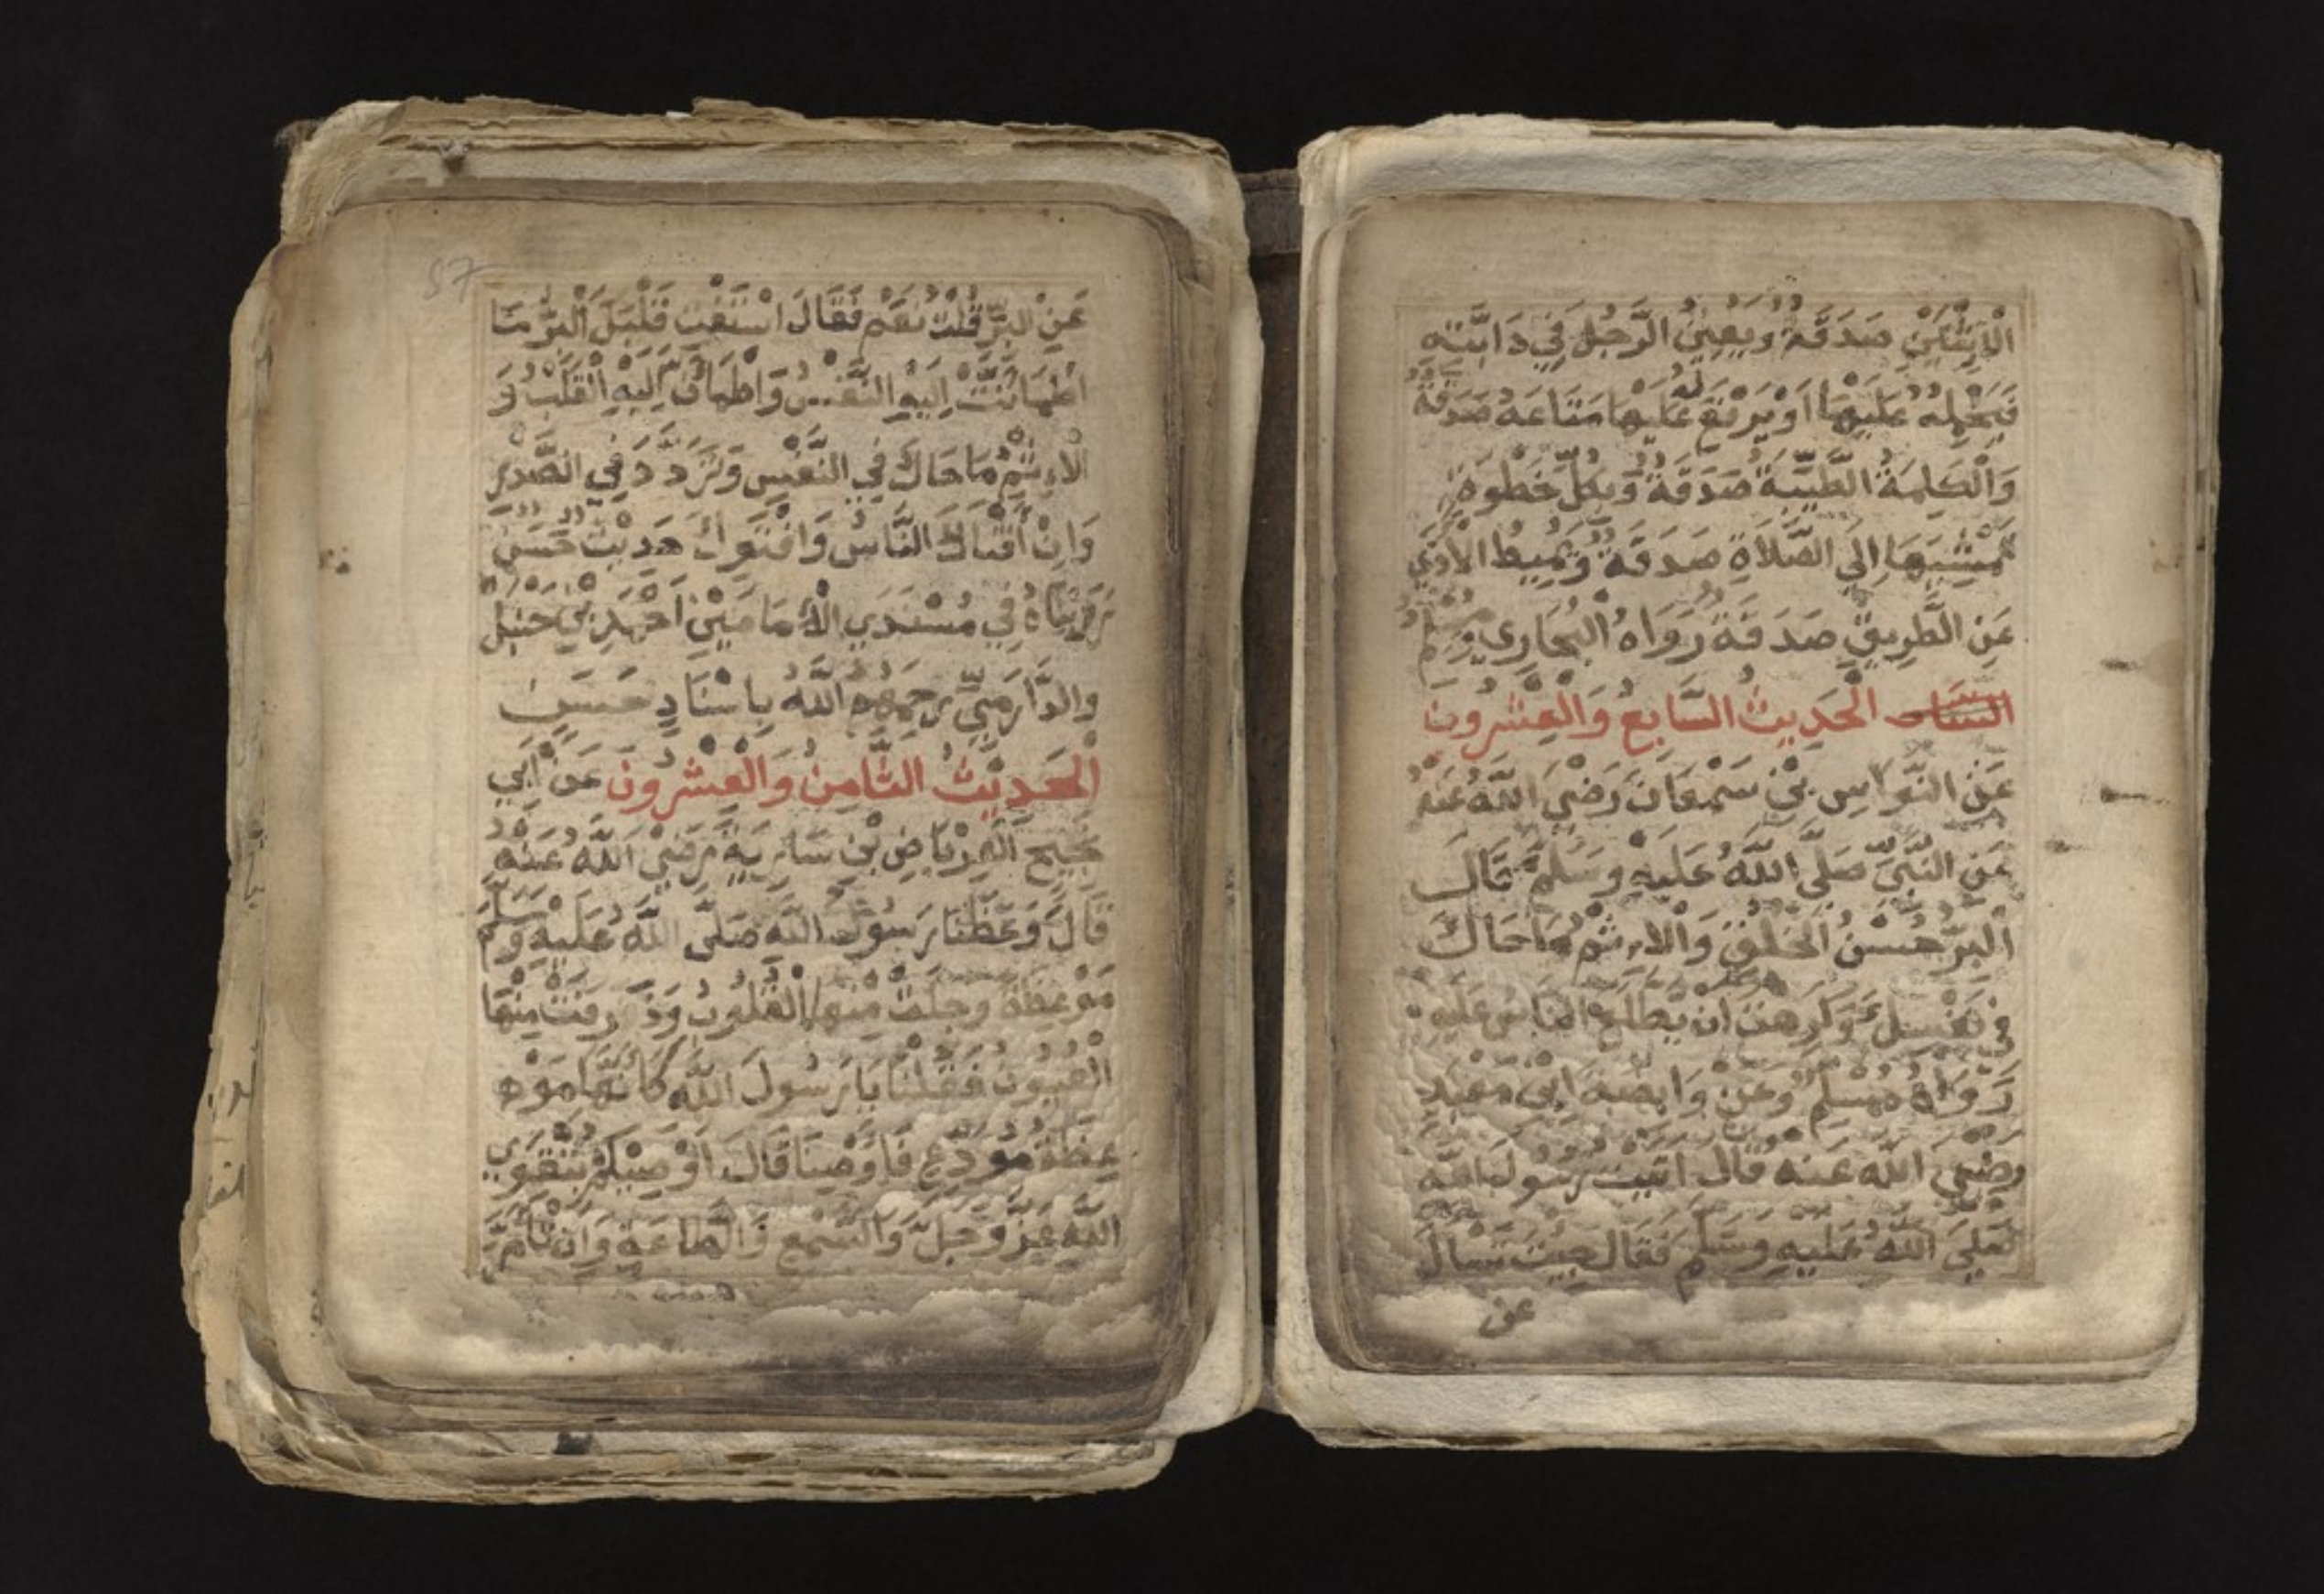 الْاِثْنَيْنِ صَدَقَةٌ وَيُعِينُ الرَّجُلَ فِي دَابَّتِهِ
فَيَحْمِلُهُ عَلَيْهَا اَوْ يَرْفَعُ لَهُ عَلَيْهَا مَتَاعَهُ صَدَقَةٌ
وَالْكَلِمَةُ الطَّيِّبَةُ صَدَقَةٌ وَبِكُلِّ خَطْوَةٍ
تَمْشِيهَا اِلَى الصَّلَاةِ صَدَقَةٌ وَتُمِيطُ الْاَذَى
عَنِ الطَّرِيقِ صَدَقَةٌ رَوَاهُ الْبُخَارِي وَمُسْلِمٌ
الْحَدِيثُ السَّابِعُ وَالْعِشْرُونَ
عَنِ النَّوَّاسِ بْنِ سَمْعَانَ رَضْيَ اللَّهُ عَنْهُ
عَنِ النَّبِيِّ صَلَّى اللَّهُ عَلَيْهِ وَسَلَّمَ قَالَ
الْبِرُّ حُسْنُ الْخُلْقِ وَالْاِثْمُ مَا حَاكَ
فِي نَفْسِكَ وَكَرِهْتَ اَنْ يَطَّلِعَ النَّاسُ عَلَيْهِ
رَوَاهُ مُسْلِمٌ وَعَنْ وَابِصَةَ ابْنِ مَعْبَدٍ
رَضْيَ اللَّهُ عَنْهُ قَالَ اَتَيْتُ رَسُولَ اللَّهِ
صَلَّى اللَّهُ عَلَيْهِ وَسَلَّمَ فَقَالَ جِيْتَ تَسْاَلُ
عن
57
عَنْ الْبِرِّ قُلْتُ نَعَمْ فَقَالَ اسْتَفْتِ قَلْبَكَ الْبِرُّ مَا
اطْمَاَنَّتْ اِلَيْهِ النَّفْسُ وَاطْمَاَنَّ اِلَيْهِ الْقَلْبُ وَ
الْاِثْمُ مَا حَاكَ فِي النَّفْسِ وَتَرَدَّدَ فِي الصَّدْرِ
وَاِنْ اَفْتَاكَ النَّاسُ وَاَفْتَوْكَ حَدِيثٌ حَسَنٌ
رَوَيْنَاهُ فِي مُسْنَدَيِ الْاِمَامَيْنِ اَحْمَدِ بْنِ حَنْبَلٍ
وَالدَّارَمِيِّ رَحِمَهُمُ اللَّهُ بِاِسْنَادٍ حَسَنٍ
الْحَدِيْثُ الثَّامِنُ وَالْعِشْرُونَ عَنْ اَبِي
نَجِيحٍ الْعِرْبَاضِ بْنِ سَارِيَةَ رَضْيَ اللَّهُ عَنْهُ
قَالَ وَعَظَنَا رَسُولُ اللَّهِ صَلَّى اللَّهُ عَلَيْهِ وَسَلَّمَ
مَوْعِظَةً وَجِلَتْ مِنْهَا الْقُلُوبُ وَذَرَفَتْ مِنْهَا
الْعُيُونُ فَقُلْنَا يَا رَسُولَ اللَّهِ كَاَنَّهَا مَوْ
عِظَةُ مُوَدِّعٍ فَاَوْصِينَا قَالَ اُوْصِيْكُمْ بِتَقْوَى
اللَّهِ عَزَّ وَجَلَّ وَالسَّمْعِ وَالطَّاعَةِ وَاِنْ تَاَمَّرَ